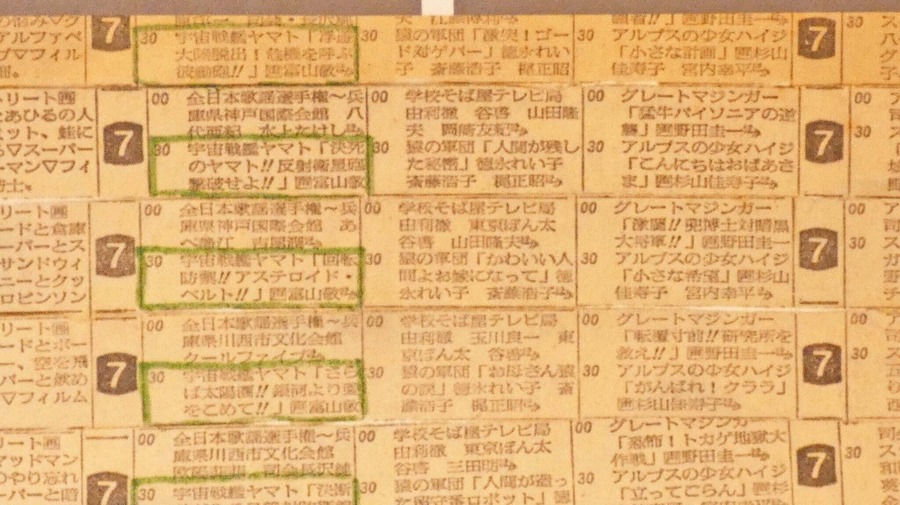 7
30 宇宙戦艦ヤマト「浮遊
大陸脱出!危機を呼ぶ
波動砲!!」画富山敬
30
猿の軍団「激突!ゴー
ド対ゲバー」徳永れい
子 斎藤浩子 梶正昭
30 アルプスの少女ハイジ
「小さな計画」画杉山
佳寿子 宮内幸平
7
アルファベ
▽フィル
トリート画
あひるの人
ット、蛙に
▽スーパー
ーマン▽フィ
7
00 全日本歌謡選手権〜兵
庫県神戸国際会館 八
代亜紀 水上たけし
30 宇宙戦艦ヤマト「決死
のヤマト!!反射衛星砲
撃破せよ!!」画富山敬
00 学校そば屋テレビ局
由利徹 谷啓 山田隆
夫 岡崎友紀
30 猿の軍団「人間が残し
た秘密」徳永れい子
斎藤浩子 梶正昭
00 グレートマジンガー
「猛牛バイソニアの逆
襲」画野田圭一
30 アルプスの少女ハイジ
「こんにちはおばあさ
ま」画杉山佳寿子
7
リート画
ードと倉庫
ーパーとス
サンドウィ
ニーとクッ
ロビンソン
7
00 全日本歌謡選手権〜兵
庫県神戸国際会館 あ
30 宇宙戦艦ヤマト「回転
防禦!!アステロイド・
ベルト!!」画富山敬
00 学校そば屋テレビ局
由利徹 東京ぼん太
谷啓 山田隆夫
30 猿の軍団「かわいい人
間よお嫁になって」徳
永れい子 斎藤浩子
00 グレートマジンガー
「激闘!!兜博士対暗黒
大将軍!!」画野田圭一
30 アルプスの少女ハイジ
「小さな希望」画杉山
佳寿子 宮内幸平
7
リート画
ードとボー
、空を飛
パーと飲め
▽フィルム
7
00 全日本歌謡選手権〜兵
庫県川西市文化会館
クールファイブ
30 宇宙戦艦ヤマト「さら
ば太陽圏!!銀河より愛
をこめて!!」画富山敬
00 学校そば屋テレビ局
由利徹 玉川良一 東
京ぼん太 谷啓
30 猿の軍団「お母さん猿
の涙」徳永れい子 斎
藤浩子 梶正昭
00 グレートマジンガー
「転覆寸前!!研究所を
救え!!」画野田圭一
30 アルプスの少女ハイジ
「がんばれ!クララ」
画杉山佳寿子
7
リート画
マッドマン
のやり忘れ
ーパーと暗
7
00 全日本歌謡選手権〜兵
庫県川西市文化会館
30 宇宙戦艦ヤマト「決断
00 学校そば屋テレビ局
由利徹 東京ぼん太
谷啓 三田明
30 猿の軍団「人間が造っ
た留守番ロボット」徳
00 グレートマジンガー
「恐怖!トカゲ地獄大
作戦」画野田圭一
30 アルプスの少女ハイジ
「立ってごらん」画杉
7